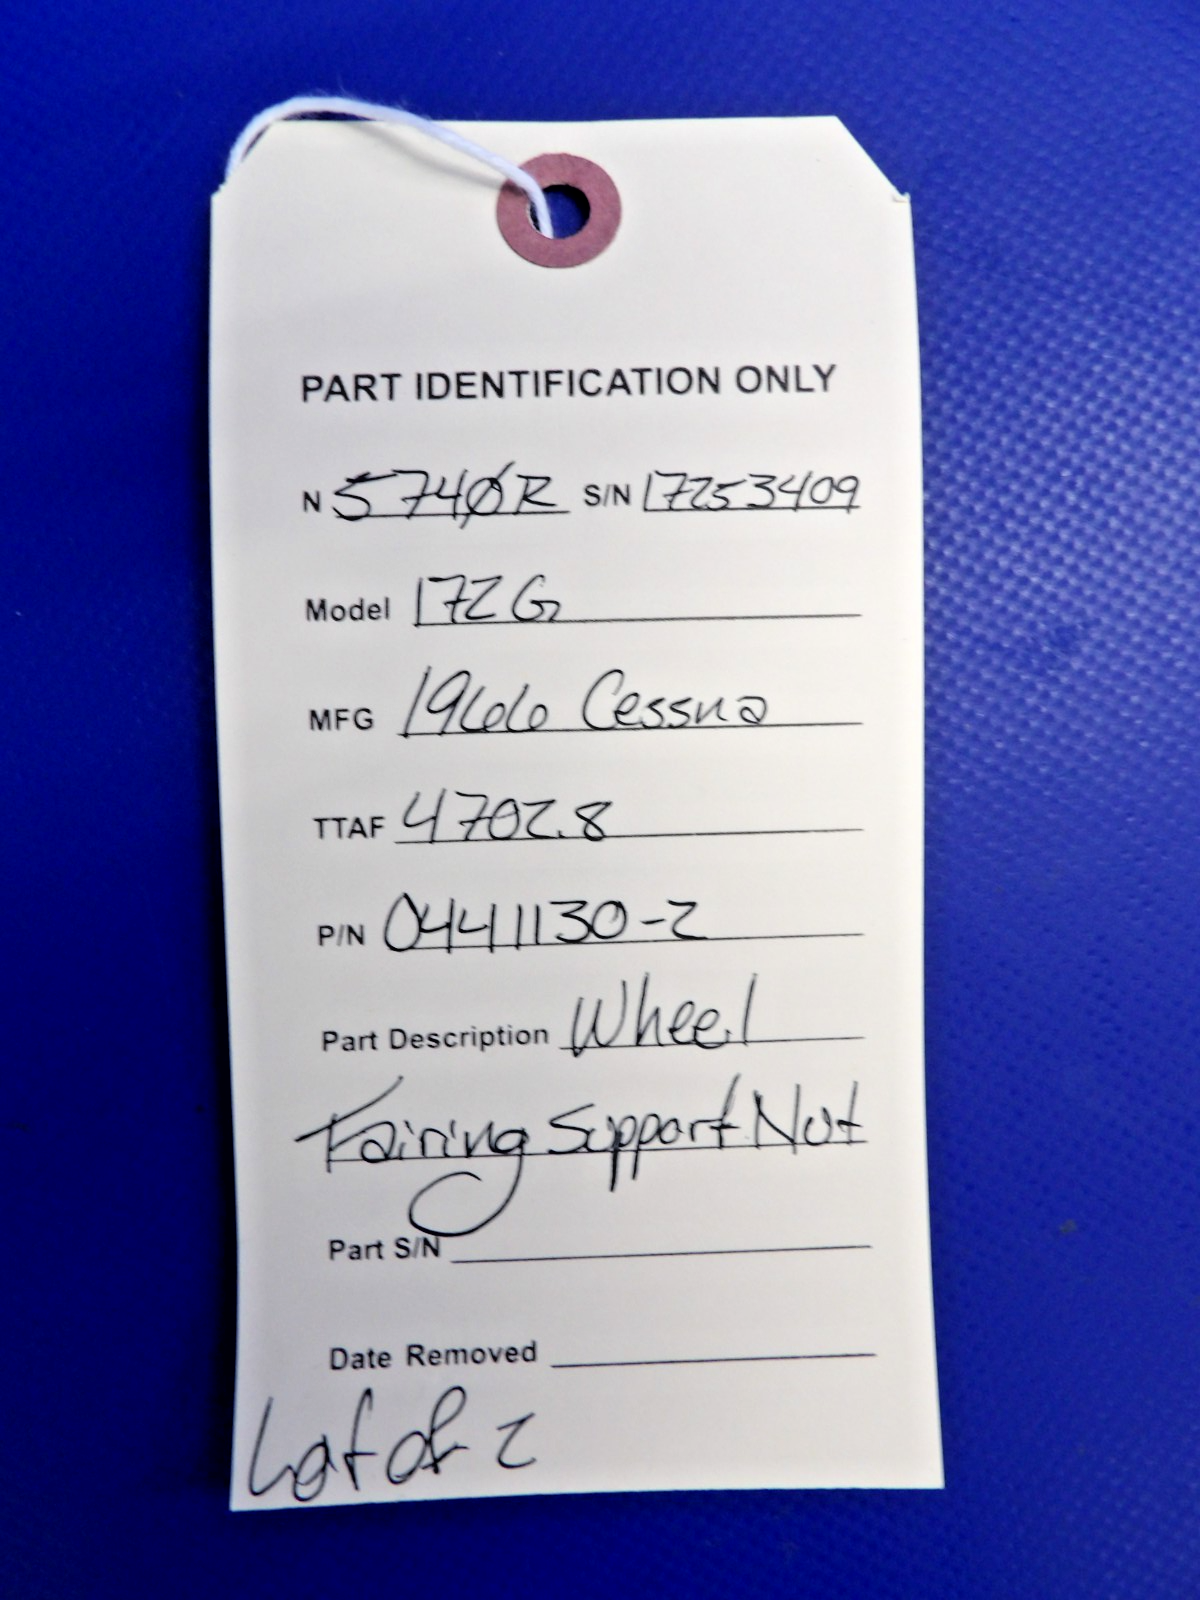 PART IDENTIFICATION ONLY
N 5740R S/N 17253409
Model 172G
MFG 1966 Cessna
TTAF 4702.8
P/N 0441130-2
Part Description Wheel
Fairing Support Nut
Part S/N
Date Removed
Lot of 2